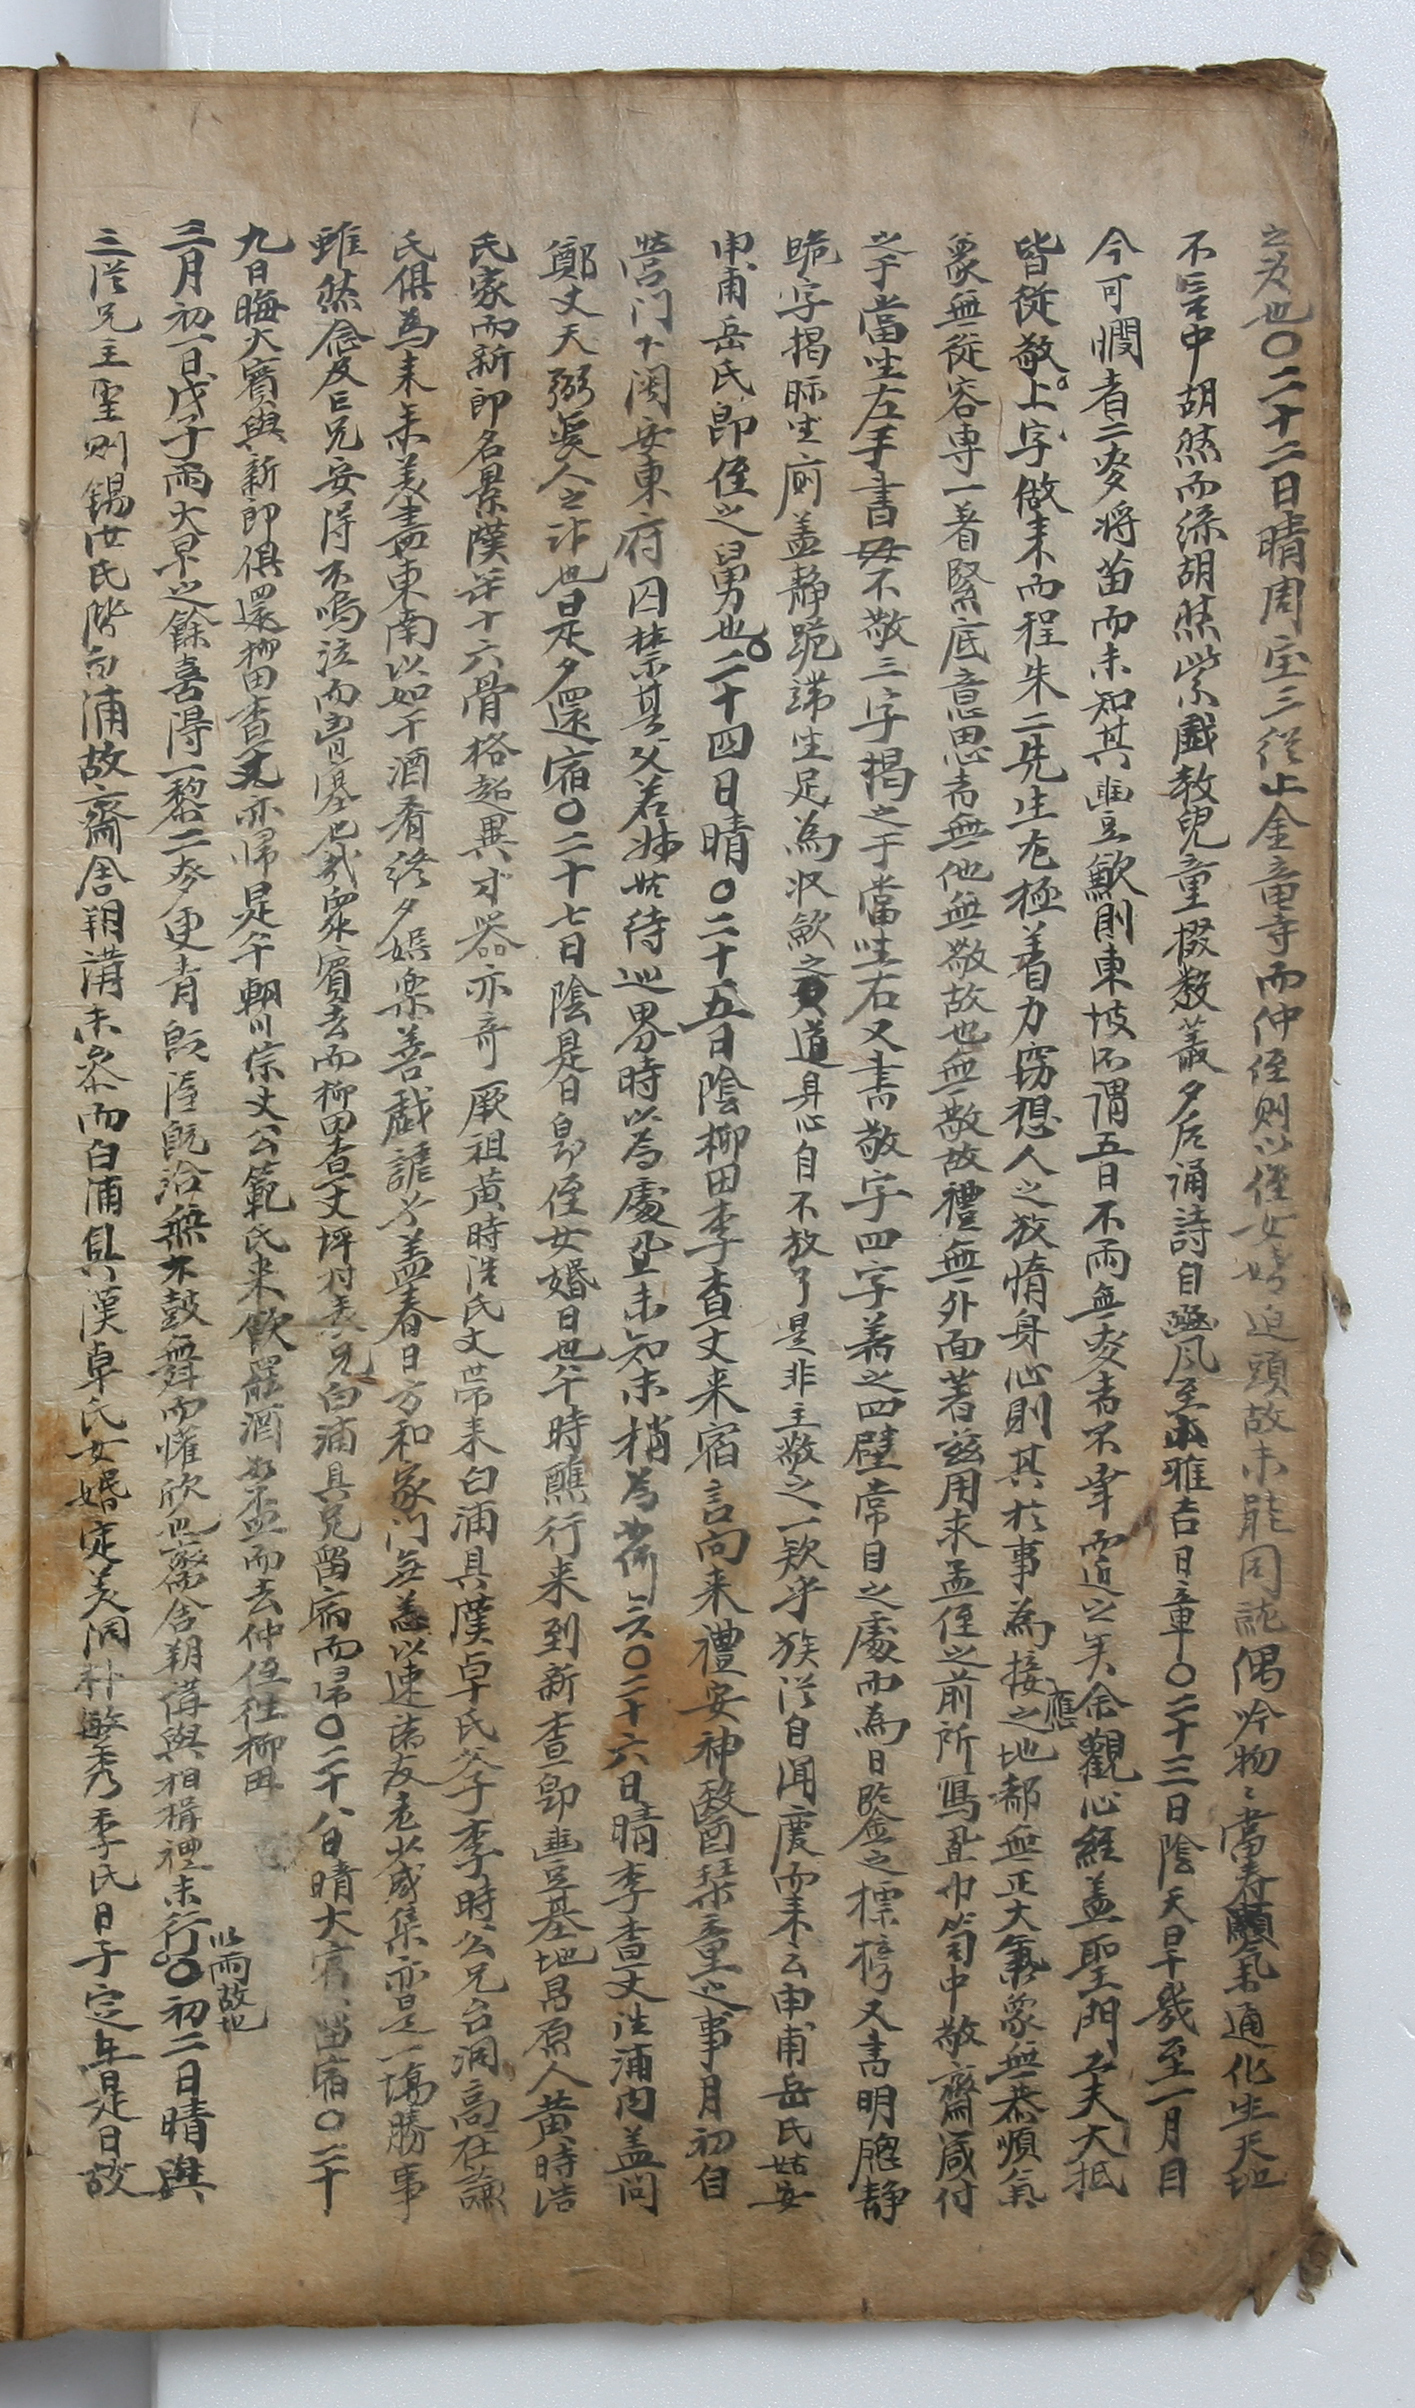 之爲也○二十二日晴周宝三從上金竜寺而仲侄則以侄女婚迫頭故未能同訛偶吟物〻當春顥氣通化生天地
不言中胡然而綠胡然紫戱敎兒童掇數叢夕后誦詩自豳風至小雅吉日章○二十三日陰天旱幾至一月目
今可憫者二麥將苗而未知其豊歉則東坡所謂五日不雨無麥者不幸而近之矣余觀心經盖聖門工夫大抵
皆從敬上字做來而程朱二先生尤極着力窃想人之放惰身心則其於事爲接應之地都無正大氣象無恭順氣
象無從容専一着緊底意思者無他無敬故也無敬故禮無外面著玆用求孟侄之前所寫至巾笥中敬齋箴付
之于當坐左手書毋不敬三字揭之于當坐右又書敬字四字着之四壁常目之處而爲日監之標榜又書明牕靜
跪字揭眎坐廁盖静跪端坐足爲收斂之道身心自不放了是非主敬之一欵乎族從自闻慶而来云申甫岳氏姑安
申甫岳氏即侄之舅也○二十四日晴○二十五日陰柳田李査丈来宿言向来禮安神醫琹童之事月初自
營门下関安東府囚禁其父若姊姑待巡畧時以爲處置未知末梢爲何〻云○二十六日晴李査丈往浦内盖问
鄭丈天弼丧人之祚也是夕還宿○二十七日陰是日即侄女婚日也午時醮行来到新査即豊基地昌原人黄時浩
氏家而新郎名景漢年十六骨格超異才器亦奇厥祖黄時浩氏丈帶来白浦具漢卓氏父子李時公兄台洞高在謙
氏俱爲来来美盡東南以如干酒肴終夕娯楽善戱謔兮盖春日方和家门無恙以速諸友老少咸集亦是一場勝事
雖然念及亡兄安得不嗚泣而胷塞也哉衆賓去而柳田査丈坪村表兄白浦具兄留宿而帰○二十八日晴大賓留宿○二十
九日晦大賓與新郎俱還柳田査丈亦帰是午輞川宗丈公範氏来飮罷酒数盃而去仲侄往柳田
三月初一日戊子雨大旱之餘喜得一黎二麥更青旣渥旣洽無不鼓舞而懽欣也齋舍朔講與相揖禮未行以雨故也○初二日晴與
三從兄主聖則錫汝氏階向浦故齋舍朔講未参而白浦具漢卓氏女婚定美洞朴敏秀李氏日子定在是日故